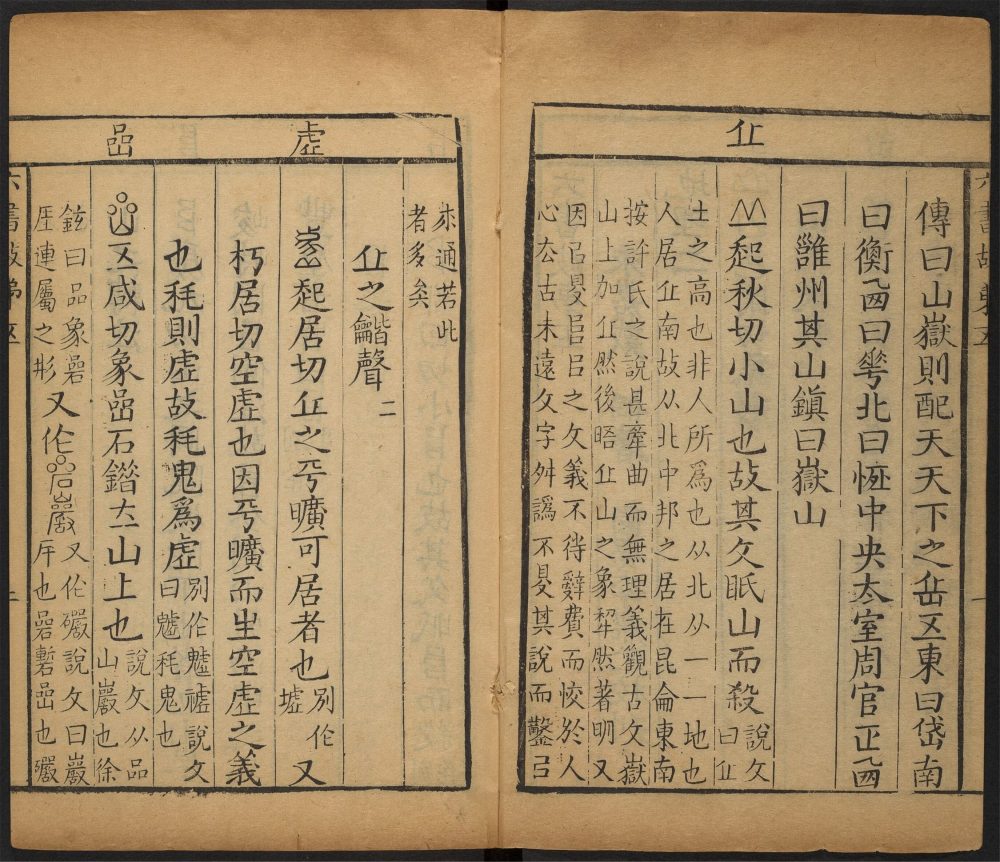 丠
傳曰山嶽則配天天下之岳五東曰岱南
曰衡西曰華北曰恆中央太室周官正西
曰雝州其山鎭曰嶽山
起秋切小山也故其文眡山而殺
說文
曰丠
土之高也非人所爲也从北从一一地也
人居丠南故从北中邦之居在昆侖東南
按許氏之說甚牽曲而無理義觀古文嶽
山上加丠然後晤丠山之象犂然著明又
因㠯叟㠯之文義不待辭費而恔於人
心厺古未遠文字舛譌不叟其說而鑿弓
虛
嵒
未通若此
者多矣
丠之龤聲二
起居切丠之丂曠可居者也
別作
墟
又
朽居切空虛也因丂曠而生空虛之義
也秏則虛故秏鬼爲虛
別作魖䖏說文
曰魖秏鬼也
五咸切象嵒石厽山上也
說文从品
山巖也徐
鉉曰品象嵒
厓連屬之形
又作
巖
又作礹說文曰巖
厈也礹嵒也
六書故弟五